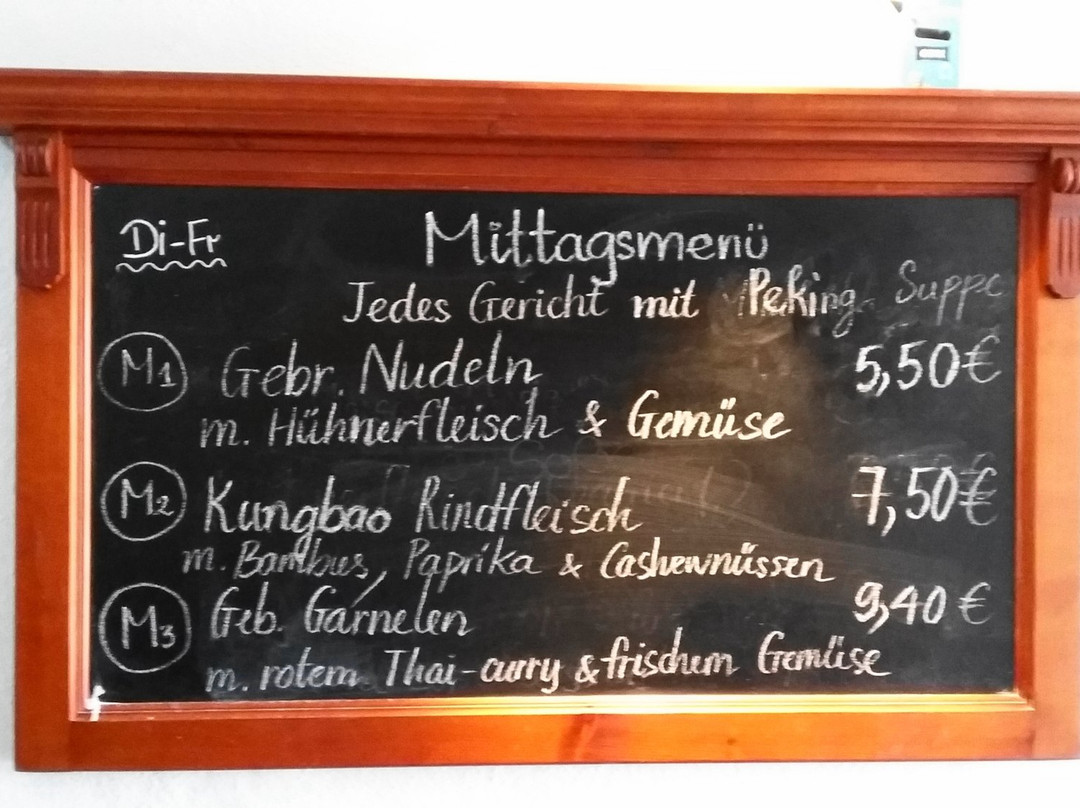 Di-Fr
Mittagsmenü
Jedes Gericht mit Peking Suppe
M1 Gebr. Nudeln 5,50€
m. Hühnerfleisch & Gemüse
M2 Kungbao Rindfleisch 7,50€
m. Bambus, Paprika & Cashewnüssen
M3 Geb. Garnelen 9,40€
m. rotem Thai-curry & frischem Gemüse